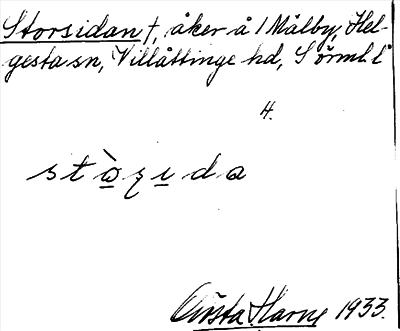 Storsidan †, åker å 1 Målby, Hel-
gesta sn, Villåttinge hd, Sörml. l.
4.
stòrida
Gösta Harne 1933.